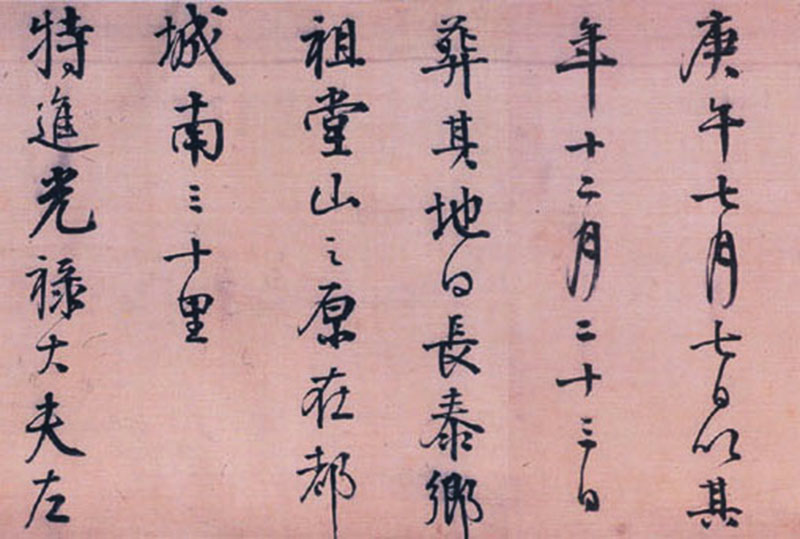 庚午七月七日以其
年十二月二十三日
葬其地曰長泰鄉
祖堂山之原在都
城南三十里
特進光禄大夫左